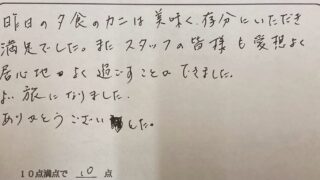 昨日の夕食のカニは美味く、存分にいただき
満足でした。またスタッフの皆様も愛想よく
居心地がよく過ごすことができました。
よい旅になりました。
ありがとうございました。
10点満点で 10 点